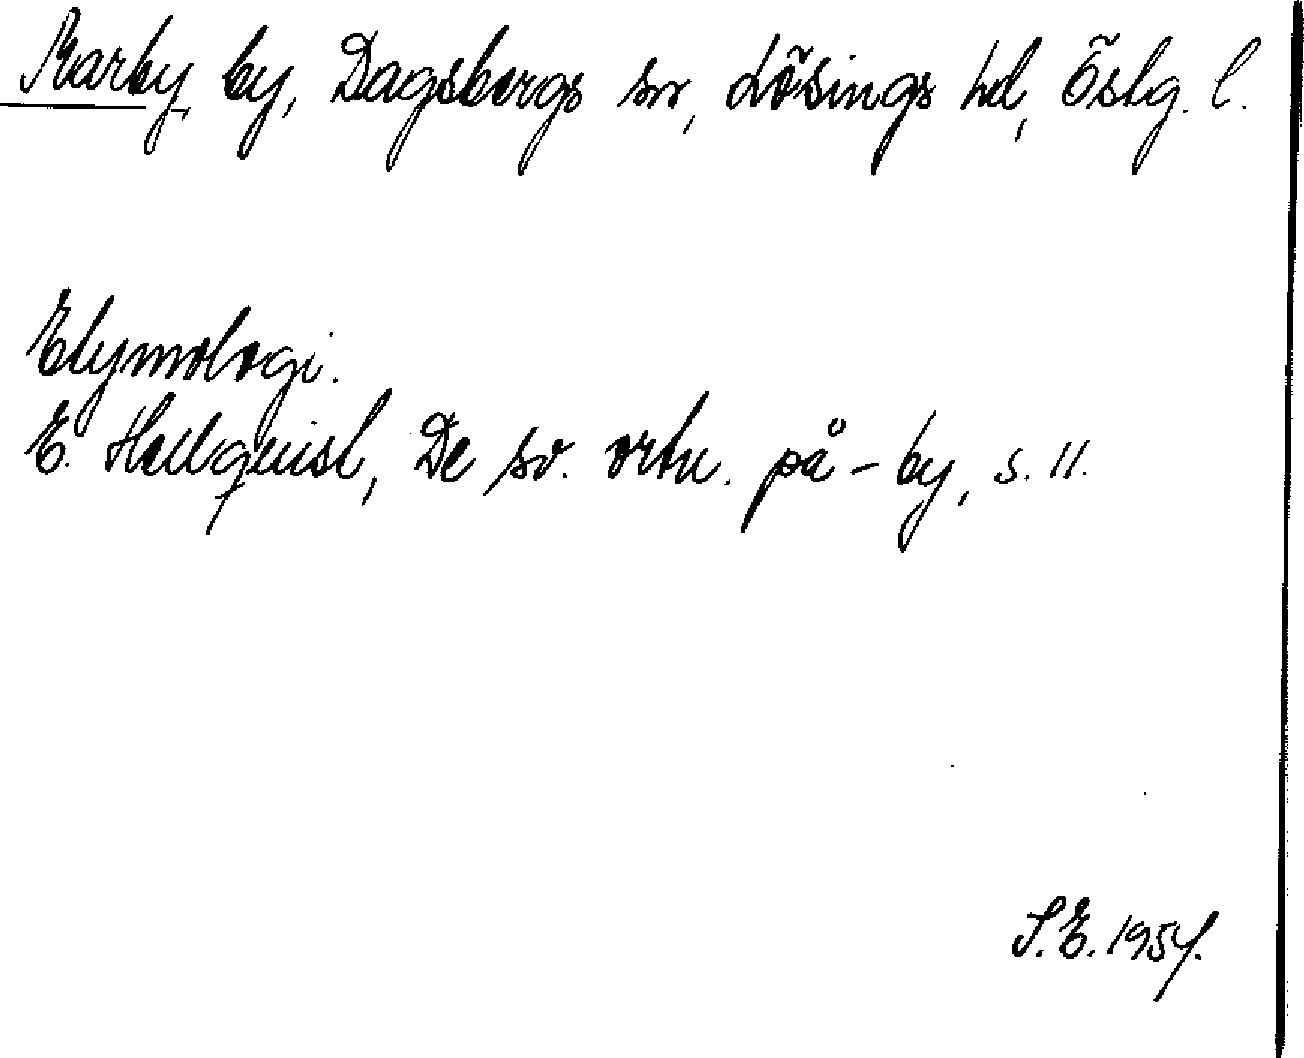 Marby by, Dagsbergs sn, Lösings hd, Östg. l.
Etymologi.
E. Hellquist, De sv. ortn. på -by, s. 11.
S. E. 1954.